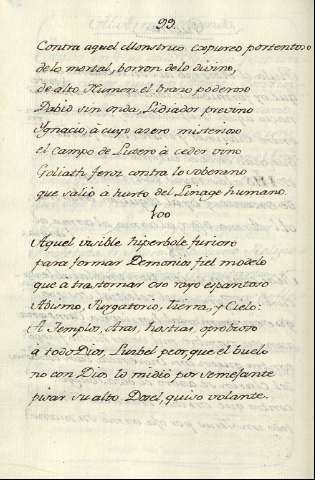 99.
Contra aquel Monstruo espureo portentoso
de lo mortal, borron de lo divino,
de alto Numen el brazo poderoso
Dabid sin onda, Lidiador previno
Ygnacio, à cuyo azero misterioso
el campo de Lutero à ceder vino
Goliath feroz contra lo soberano
que saliò à hurto del Linage humano.
100
Aquel visible hiperbole furioso
para formar Demonios fiel modelo
que à trastornar oso rayo espantoso
Abismo, Purgatorio, Tierra, y Cielo:
A Templos, Aras, hostias oprobioso
à todo Dios, Luzbel peor, que el buelo
no con Dios lo midiò por semejante
pisar su alto Dosel, quiso volante.